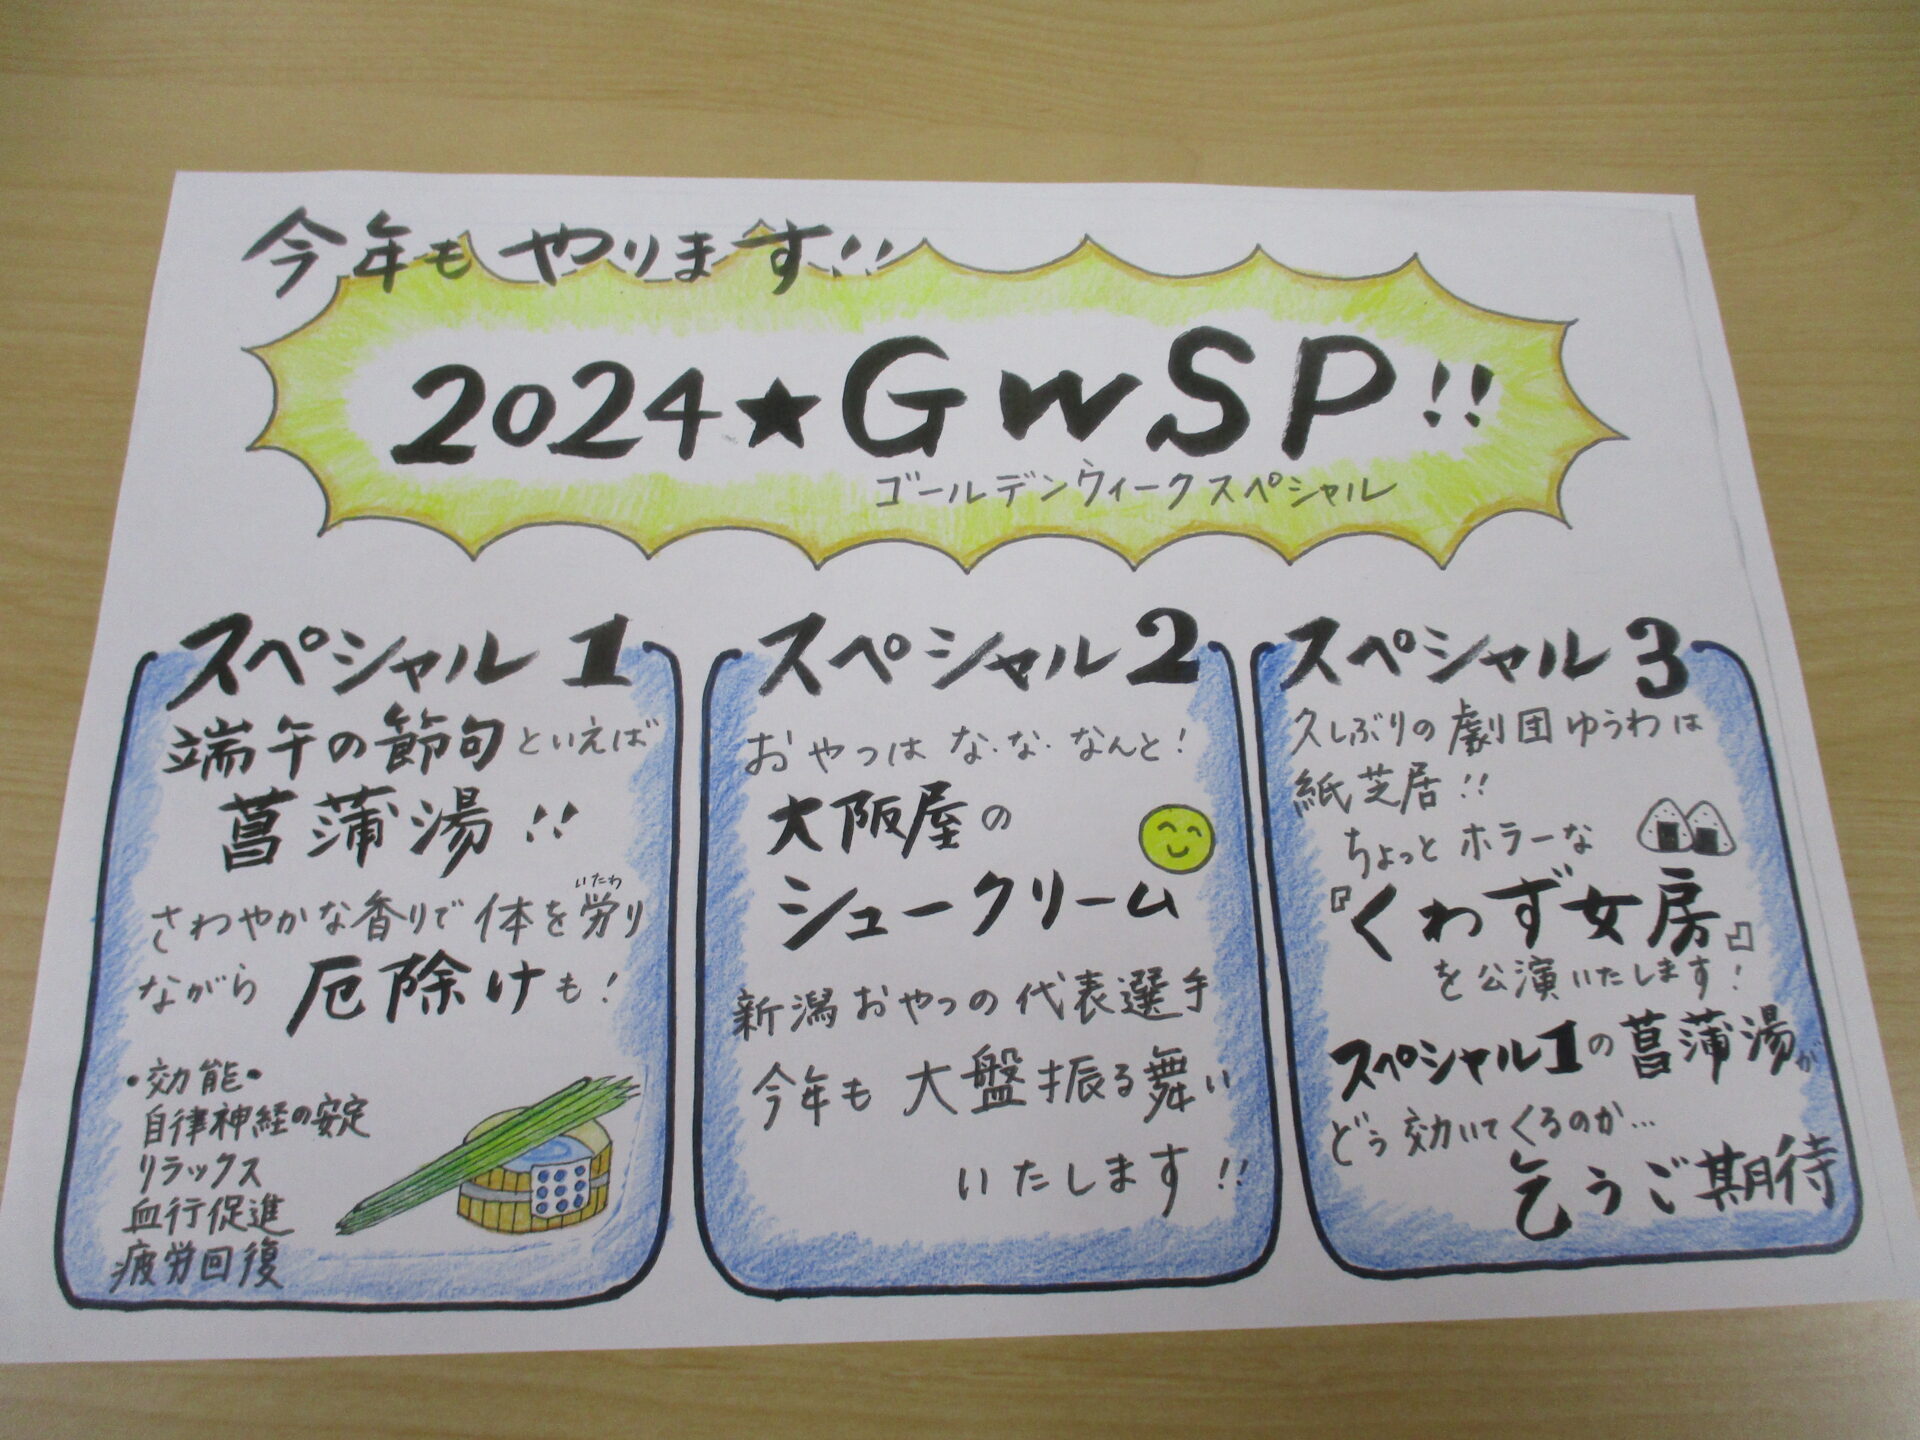 今年もやります!!
2024★GWSP!!
ゴールデンウィークスペシャル
スペシャル1
端午の節句といえば
菖蒲湯!!
さわやかな香りで体を労り
いたわ
ながら厄除けも!
・効能・
自律神経の安定
リラックス
血行促進
疲労回復
スペシャル2
おやつはな・な・なんと!
大阪屋の
シュークリーム
新潟おやつの代表選手
今年も大盤振る舞い
いたします!!
スペシャル3
久しぶりの劇団ゆうわは
紙芝居!!
ちょっとホラーな
『くわず女房』
を公演いたします!
スペシャル1の菖蒲湯が
どう効いてくるのか…
乞うご期待